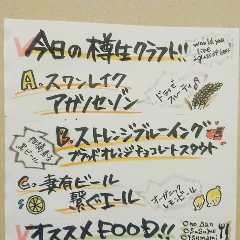 今日の樽生クラフト!!
would you
like
a glass of beer?
A. スワンレイク
アガノセゾン
ドライ
フルーティ
B. ストレンジブルーイング
ブラッドオレンジチョコレートスタウト
黒ビール
C. 妻有ビール
繋ぐエール
オーガニック
レモンピール
オススメFOOD!!
Ono san
Osusume
Otsumami